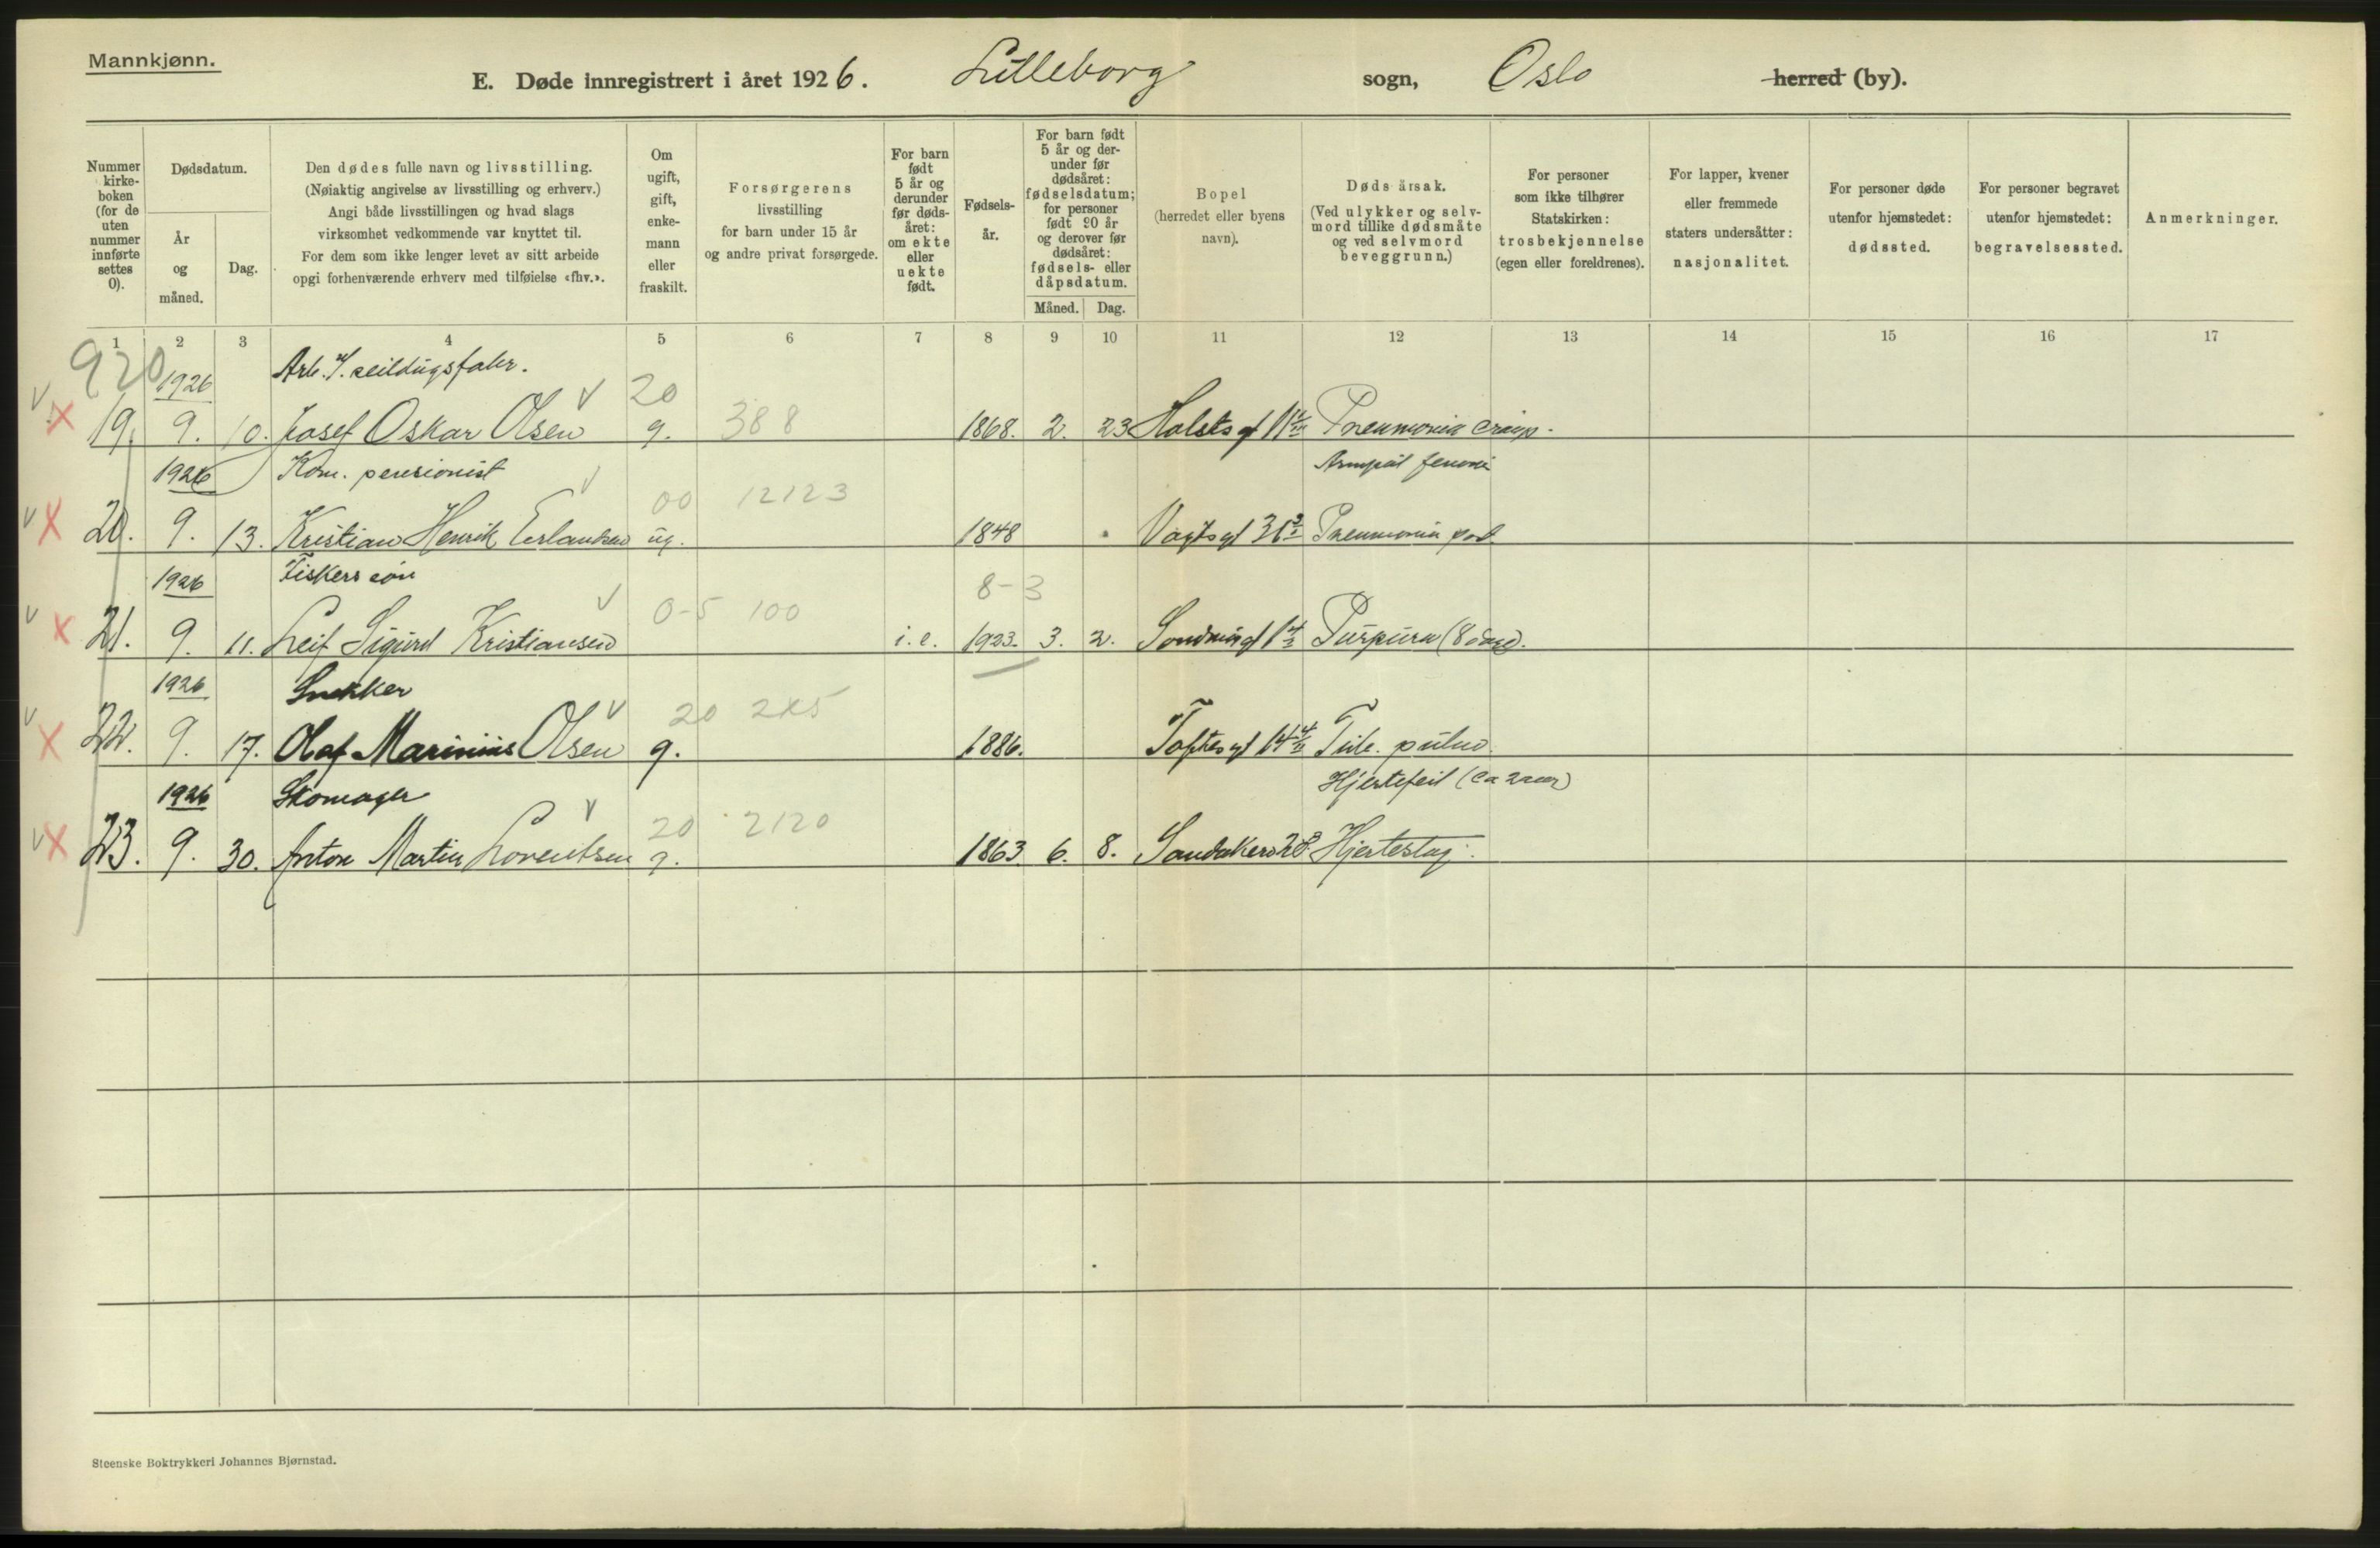 Mannkjønn.
E. Døde innregistrert i året 1926. Lilleborg sogn, Oslo herred (by).
Nummer kirke-boken (for de uten nummer innførte settes 0).
Dødsdatum.
År og måned.
Dag.
Den dødes fulle navn og livsstilling.
(Nøiaktig angivelse av livsstilling og erhverv.)
Angi både livsstillingen og hvad slags
virksomhet vedkommende var knyttet til.
For dem som ikke lenger levet av sitt arbeide
opgi forhenværende erhverv med tilføielse «fhv.».
Om ugift, gift, enke-mann eller fraskilt.
Forsørgerens
livsstilling
for barn under 15 år
og andre privat forsørgede.
For barn født 5 år og derunder før døds-året: om ekte eller uekte født.
Fødsels-år.
For barn født 5 år og der-under før dødsåret: fødselsdatum; for personer født 90 år og derover før dødsåret: fødsels- eller dåpsdatum.
Måned. Dag.
Bopel
(herredet eller byens navn).
Døds årsak.
(Ved ulykker og selv-mord tillike dødsmåte og ved selvmord beveggrunn.)
For personer
som ikke tilhører
Statskirken:
trosbekjennelse
(egen eller foreldrenes).
For lapper, kvener
eller fremmede
staters undersåtter:
nasjonalitet.
For personer døde
utenfor hjemstedet:
dødssted.
For personer begravet
utenfor hjemstedet:
begravelsessted.
Anmerkninger.
1 2 3 4 5 6 7 8 9 10 11 12 13 14 15 16 17
920
1926 Arb. v. seildugsfabr.
20 388
19. 9. 10. Josef Oskar Olsen g. 1868. 2. 23 Holsts gt Pneumonia croup.
1926 Kom. pensionist
00 12123
20. 9. 13. Kristian Henrik Erlandsen ug. 1848 Vogts gt Pneumonia
1926 Fiskers søn 8-3
0-5 100
21. 9. 11. Leif Sigurd Kristiansen i.e. 1923. 3. 2. Purpura (8 dage).
1926 Snekker
20 2x5
22. 9. 17. Olaf Marinius Olsen g. 1886. Toftes gt Tub. pulm.
1926 Skomager Hjertefeil (ca 2 aar)
20 2120
23. 9. 30. Anton Martin Lorentsen g. 1863 6. 8. Sandakerv Hjerteslag.
Steenske Boktrykkeri Johannes Bjørnstad.